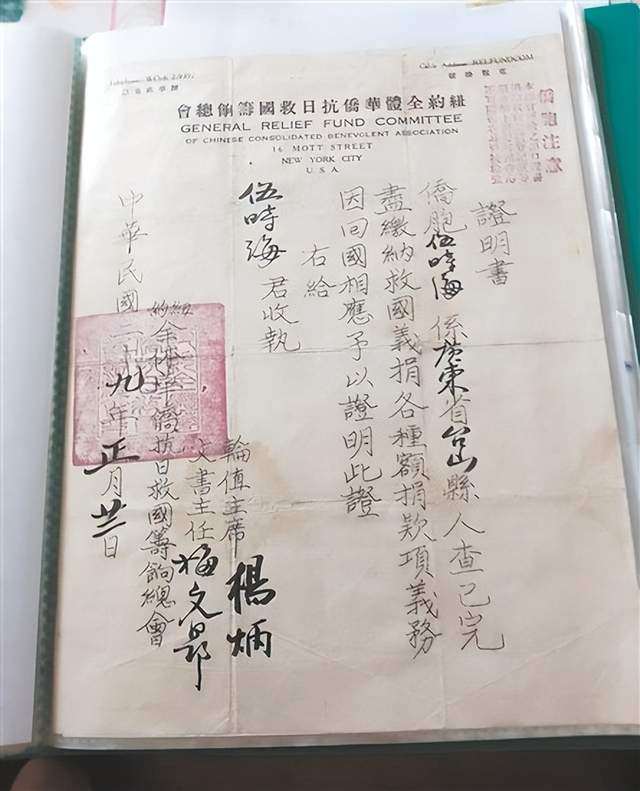 Cable Address: RELFUNDCOM
號掛報電
會總餉籌國救日抗僑華體全約紐
GENERAL RELIEF FUND COMMITTEE
OF CHINESE CONSOLIDATED BENEVOLENT ASSOCIATION
16 MOTT STREET
NEW YORK CITY
U.S.A.
僑胞注意
證明書
僑胞伍時海係廣東省台山縣人查已完
盡繳納救國義捐各種額捐款項義務
因回國相應予以證明此證
右給
伍時海君收執
輪值主席 楊炳
文書主任 梅文昴
紐約全體華僑抗日救國籌餉總會
中華民國二十九年正月廿二日